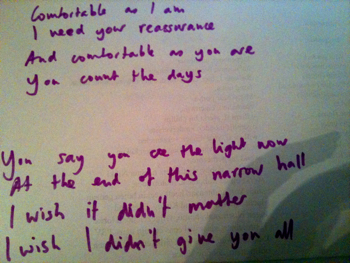 Comfortable as I am
I need your reassurance
And comfortable as you are
You count the days
You say you see the light now
At the end of this narrow hall
I wish it didn't matter
I wish I didn't give you all